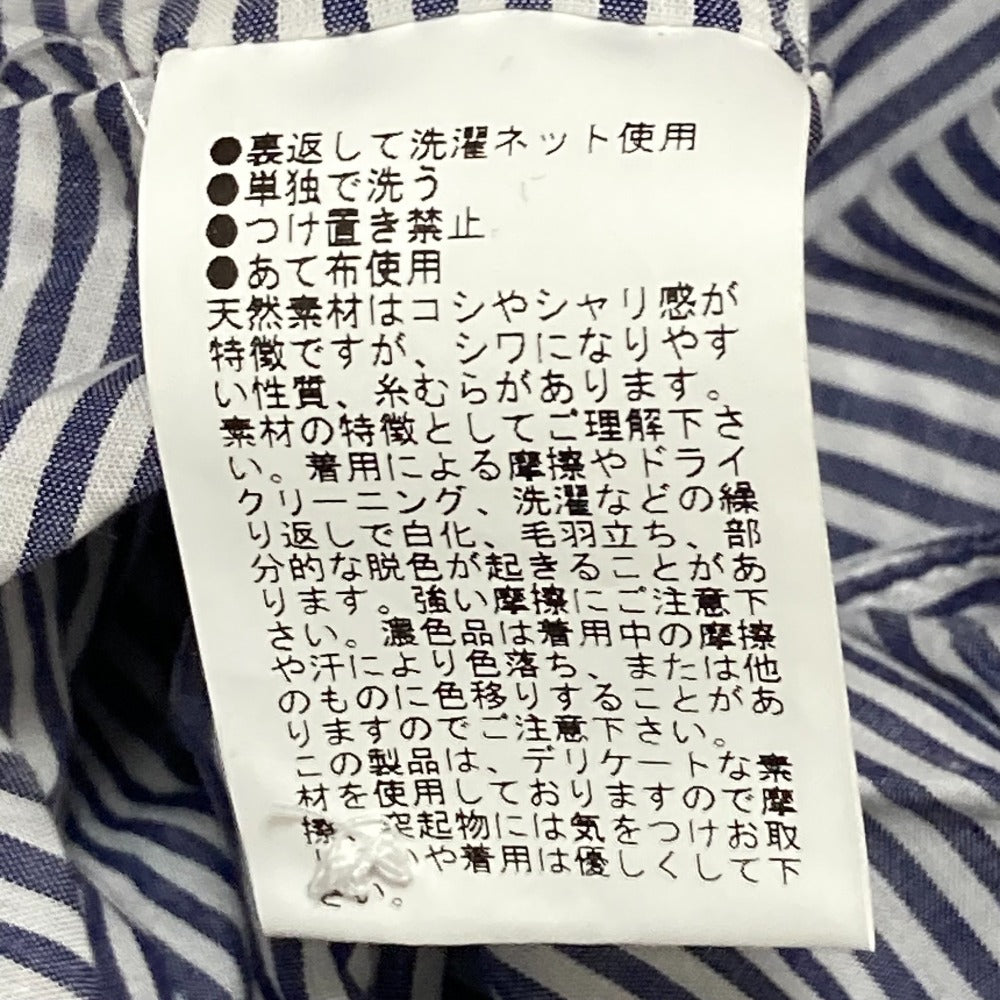 ●裏返して洗濯ネット使用
●単独で洗う
●つけ置き禁止
●あて布使用
天然素材はコシやシャリ感が
特徴ですが、シワになりやす
い性質、糸むらがあります。
素材の特徴としてご理解下さ
い。着用による摩擦やドライ
クリーニング、洗濯などの繰
り返しで白化、毛羽立ち、部
分的な脱色が起きることがあ
ります。強い摩擦にご注意下
さい。濃色品は着用中の摩擦
や汗により色落ち、または他
のものに色移りすることがあ
りますのでご注意下さい。
この製品は、デリケートな素
材を使用しておりますので摩
擦、突起物には気をつけお取
や着用は優しくして下
さい。